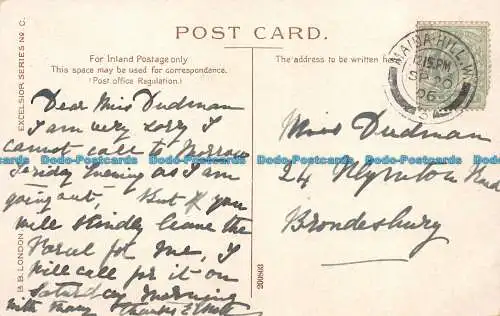 POST CARD.
EXCELSIOR SERIES No C.
B. B. LONDON
For Inland Postage only
This space may be used for correspondence.
(Post office Regulation.)
The address to be written here
MAIDA HILL. W.
12.15 PM
SP 20
06
Dear Miss Dudman
I am very sorry I
cannot call to Morrow
Friday Evening as I am
going out, But if you
will kindly leave the
Parcel for me, I
will call for it on
Saturday morning
with many thanks
Miss Dudman
24
Brondesbury
200803
Bado-Postcards Bado-Postcards Bado-Postcards Bado-Postcards Bado-Postcards